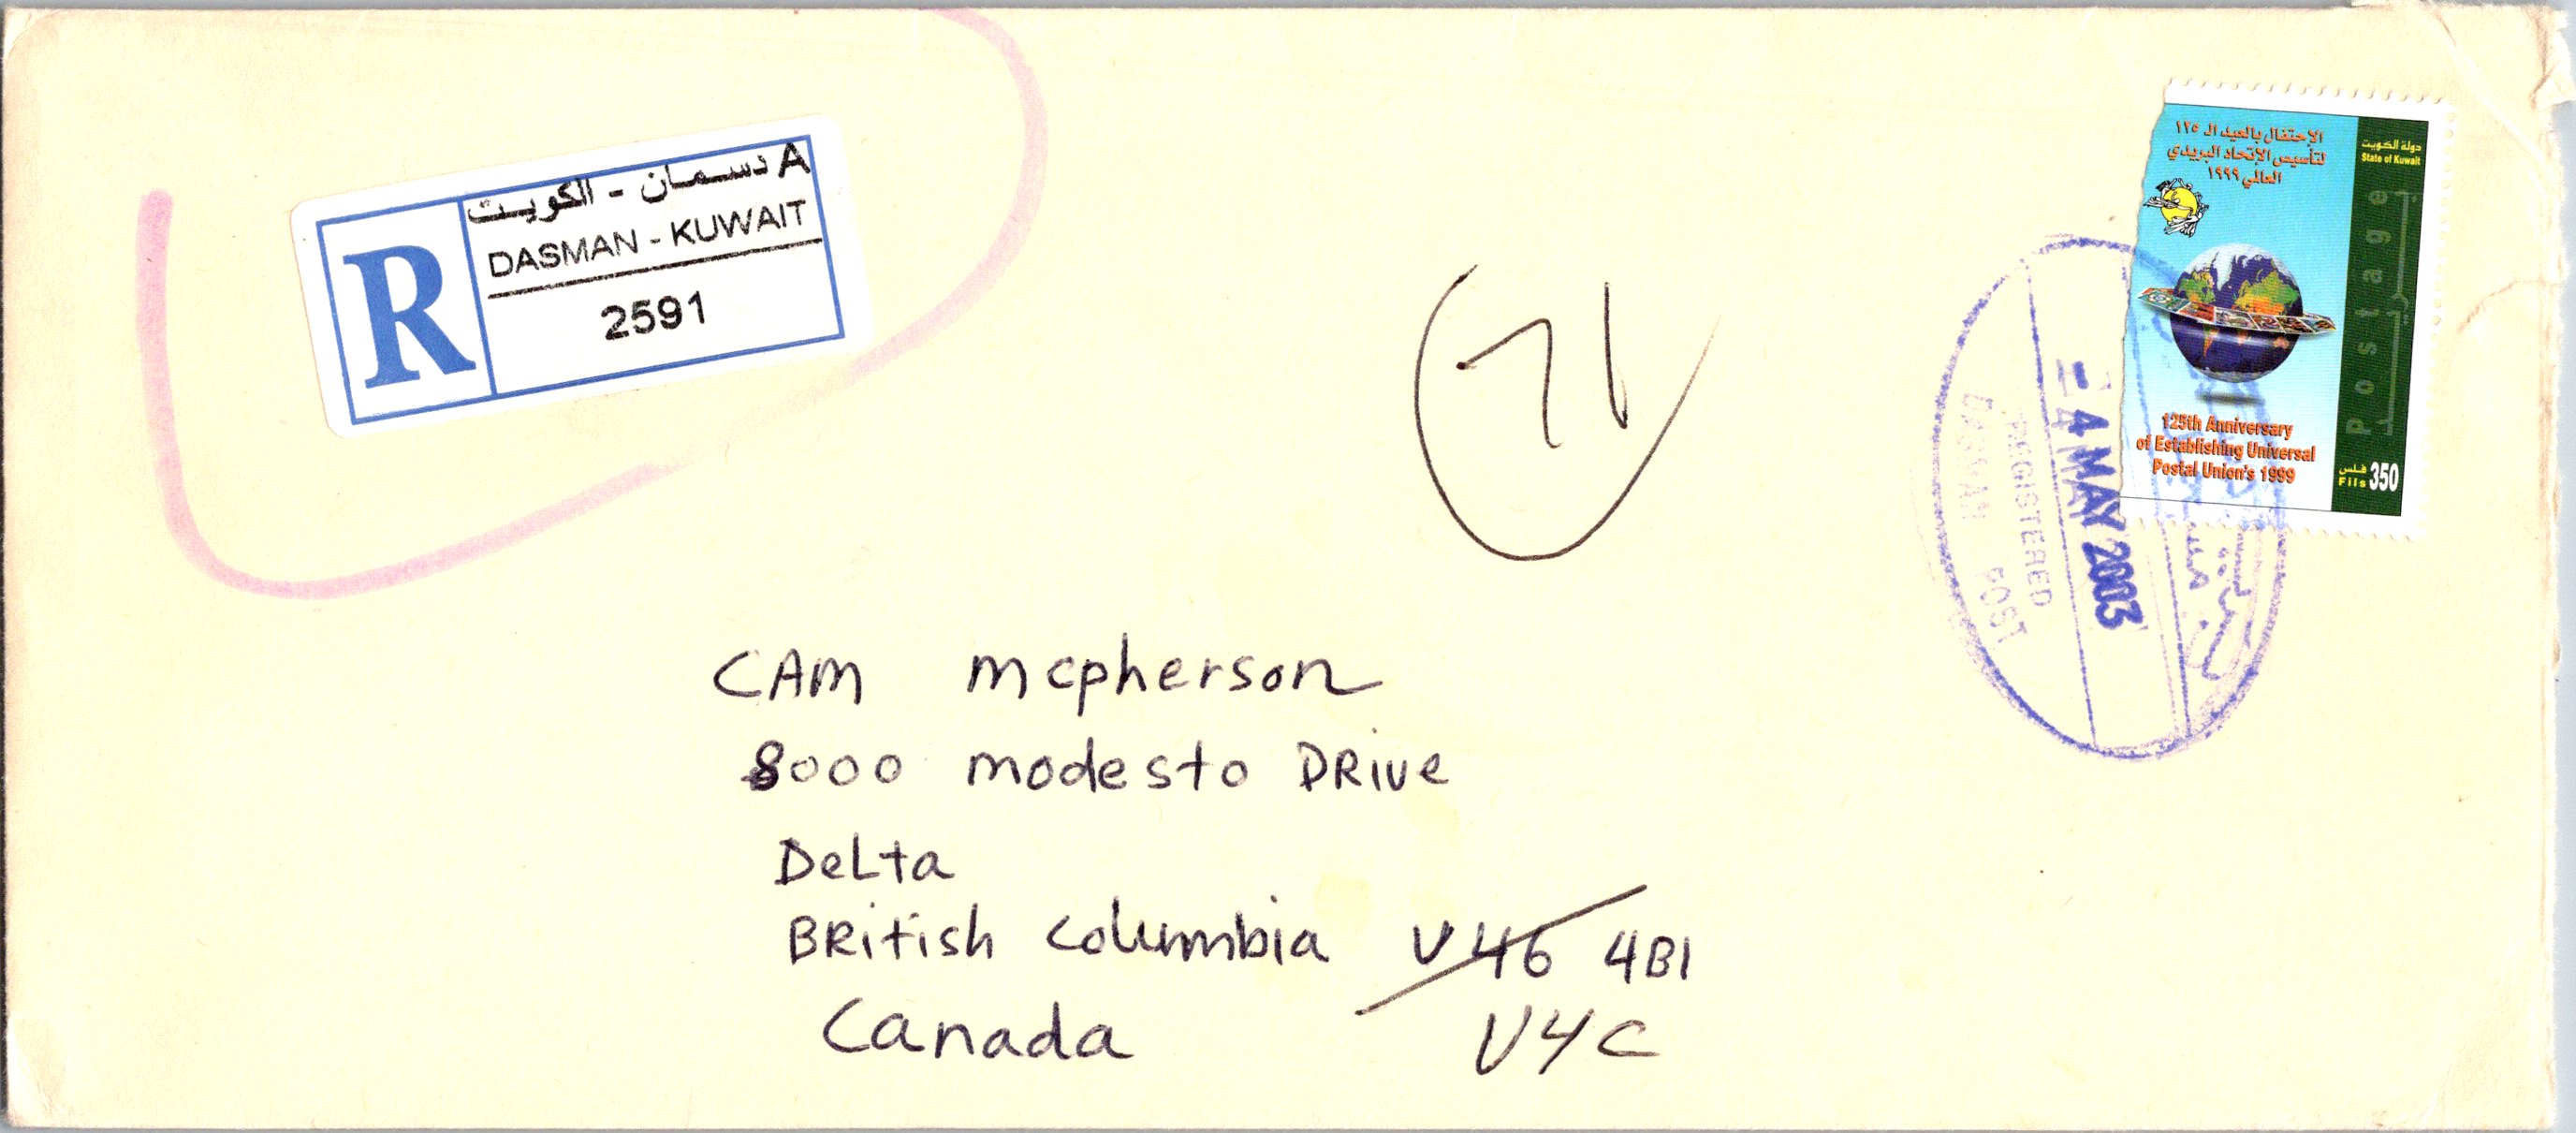 A دسمان - الكويت
DASMAN - KUWAIT
R
2591
الإحتفال بالعيد الـ ١٢٥
لتأسيس الإتحاد البريدي
العالمي ١٩٩٩
دولة الكويت
State of Kuwait
Postage
بريد
125th Anniversary
of Establishing Universal
Postal Union's 1999
فلس
Fils 350
- 4 MAY 2003
REGISTERED
DASMAN POST
71
CAM mcpherson
8000 modesto DRive
DeLta
BRitish columbia V46 4B1
V4C
Canada